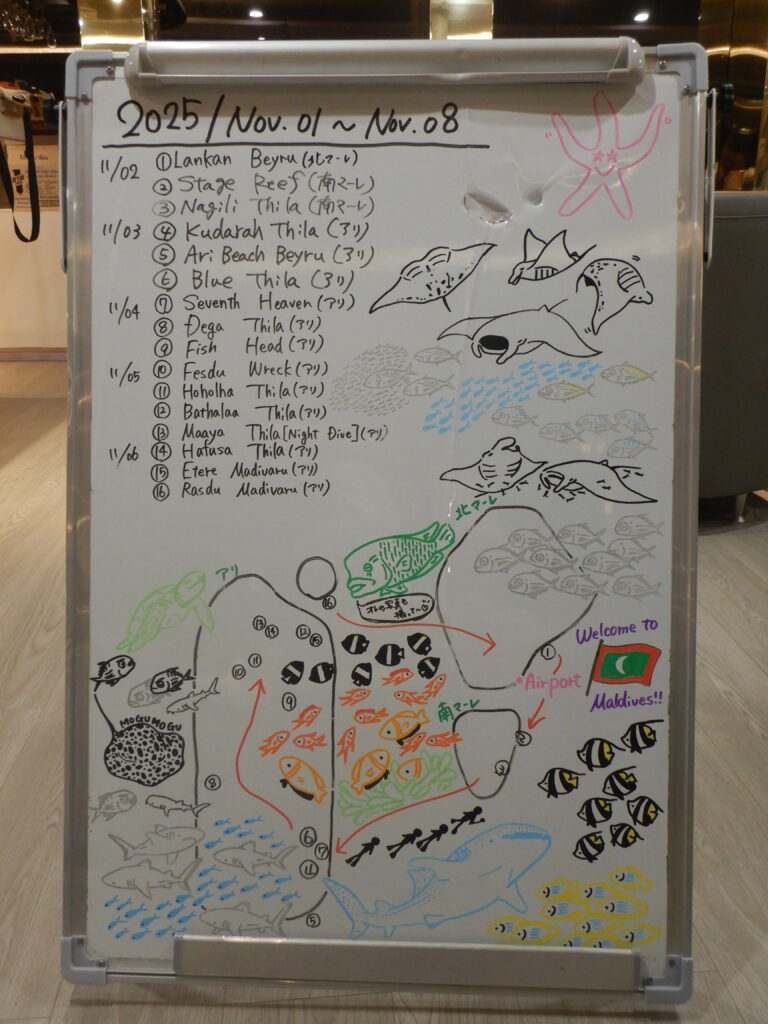 2025/Nov.01～Nov.08
11/02 ①Lankan Beyru(北マーレ)
②Stage Reef(南マーレ)
③Nagili Thila(南マーレ)
11/03 ④Kudarah Thila(アリ)
⑤Ari Beach Beyru(アリ)
⑥Blue Thila(アリ)
11/04 ⑦Seventh Heaven(アリ)
⑧Dega Thila(アリ)
⑨Fish Head(アリ)
11/05 ⑩Fesdu Wreck(アリ)
⑪Holholha Thila(アリ)
⑫Bathalaa Thila(アリ)
⑬Maaya Thila[Night Dive](アリ)
11/06 ⑭Hafusa Thila(アリ)
⑮Etere Madivaru(アリ)
⑯Rasdu Madivaru(アリ)
北マーレ
アリ
オレの写真も
撮って～
⑯
⑬ ⑭ ⑫ ⑮
⑩ ⑪
⑨
①
Welcome to
Airport
Maldives!!
南マーレ
②
③
MOGUMOGU
⑧
⑥
⑦
④
⑤